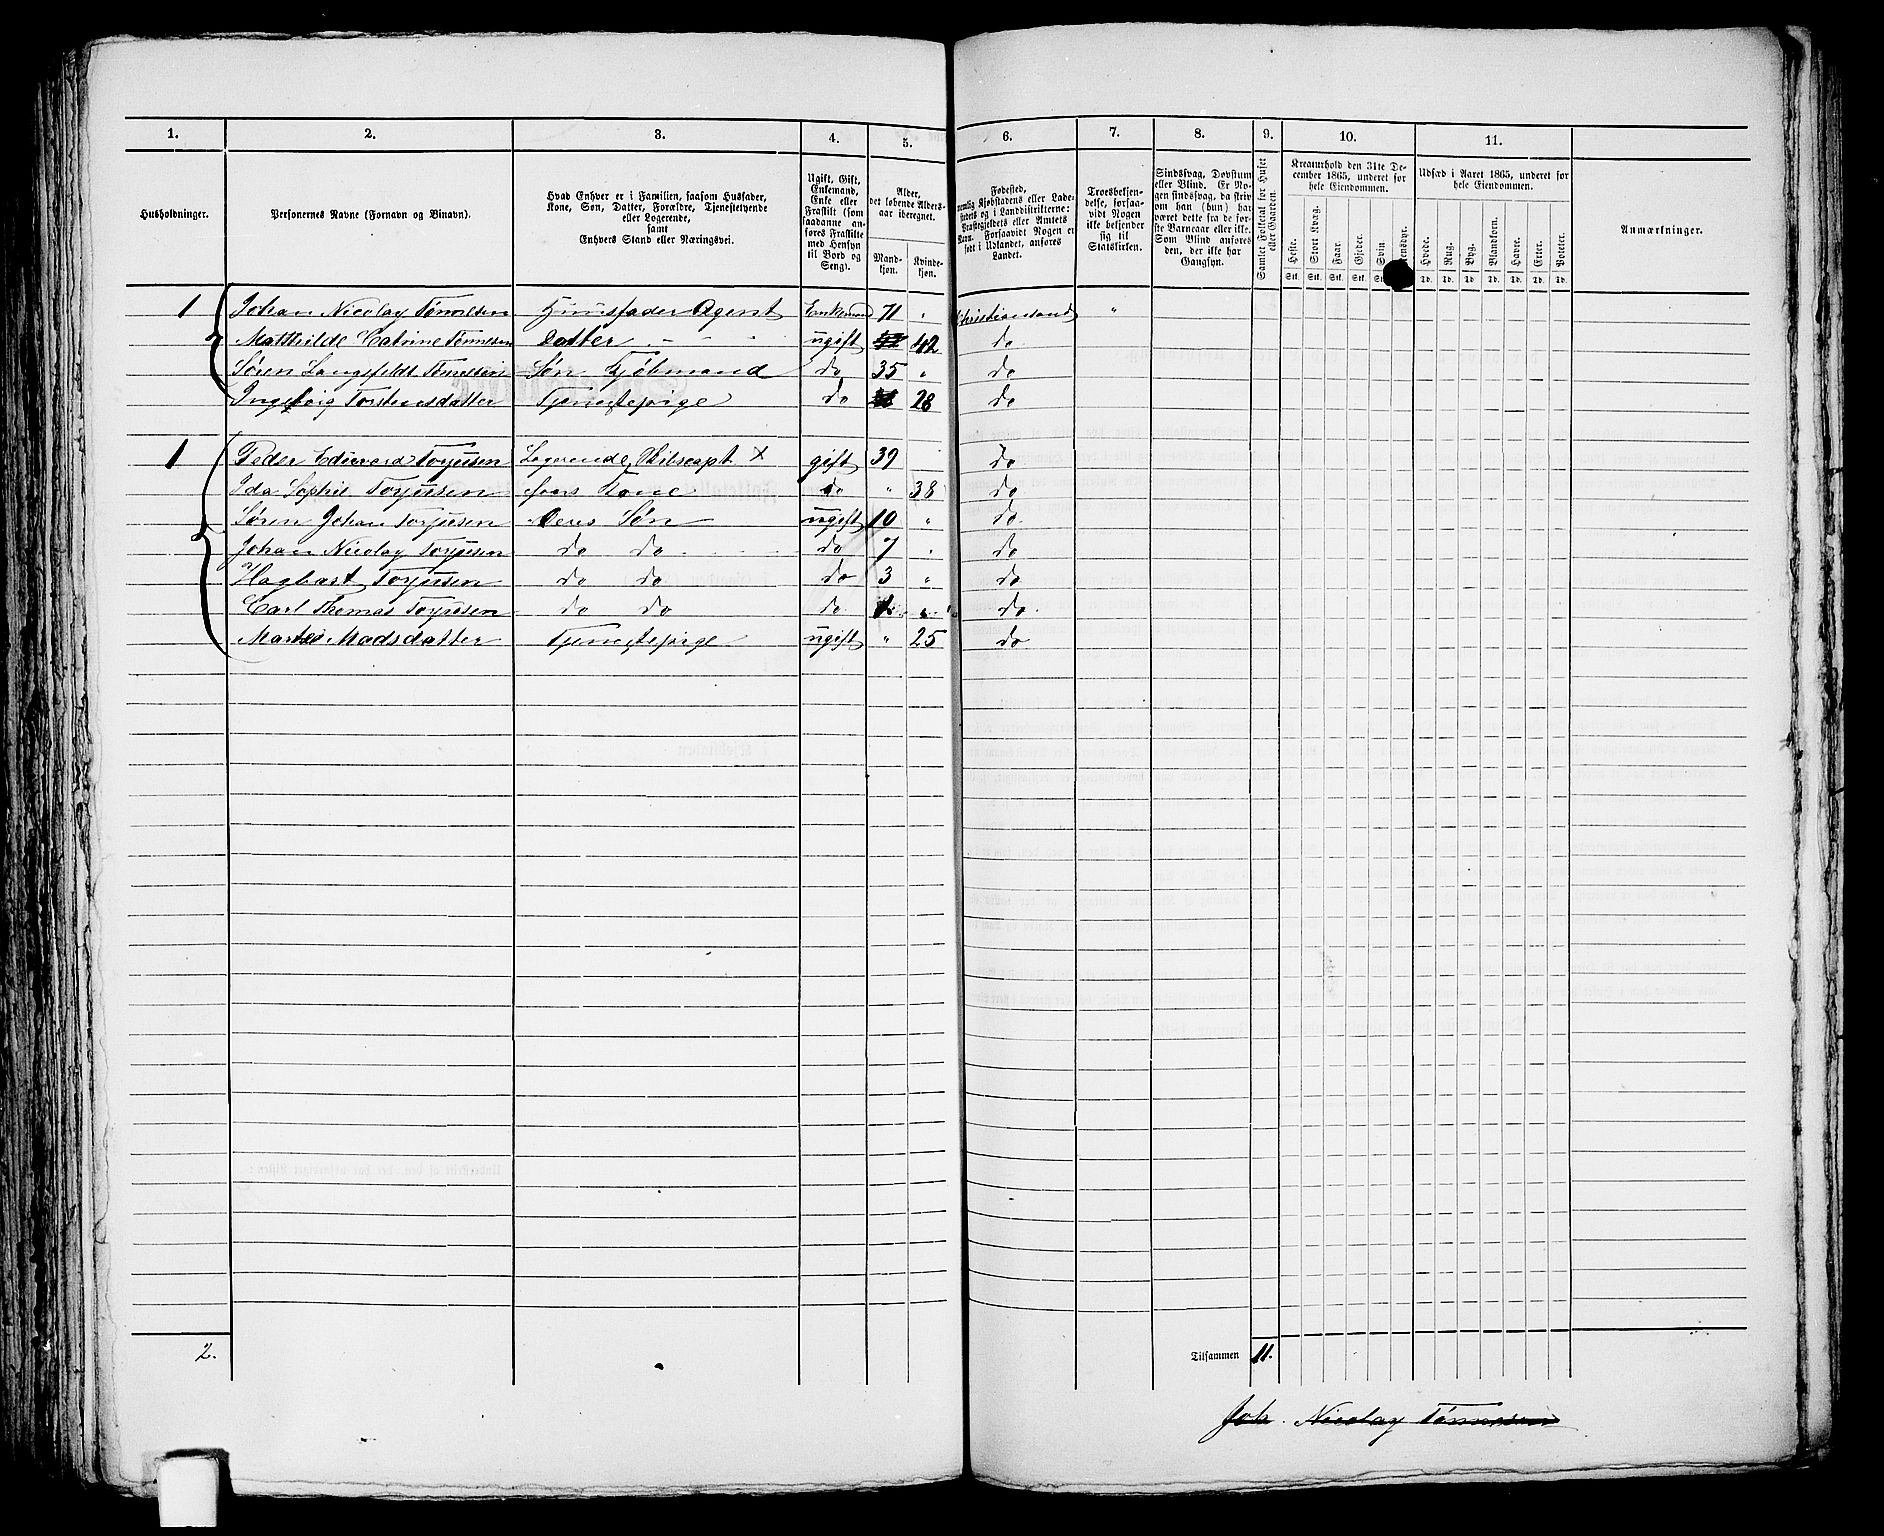 1. 2. 3. 4. 5. 6. 7. 8. 9. 10. 11.
Husholdninger.
Personernes Navne (Fornavn og Binavn).
Hvad Enhver er i Familien, saasom Husfader,
Kone, Søn, Datter, Forældre, Tjenestetyende
eller Logerende,
samt
Enhvers Stand eller Næringsvei.
Ugift, Gift,
Enkemand,
Enke eller
Fraskilt (som
saadanne an-
føres Fraskilte
med Hensyn
til Bord og
Seng).
Alder,
det løbende Alders-
aar iberegnet.
Mand-
kjøn.
Kvinde-
kjøn.
Fødested,
nemlig Kjøbstadens eller Lade-
stedets og i Landdistrikterne:
Præstegjeldets eller Amtets
Navn. Forsaavidt Nogen er
født i Udlandet, anføres
Landet.
Troesbekjen-
delse, forsaa-
vidt Nogen
ikke bekjender
sig til
Statskirken.
Sindssvag, Døvstum
eller Blind. Er No-
gen sindssvag, da skriv
om han (hun) har
været dette fra de før-
ste Barneaar eller ikke.
Som Blind anføres
den, der ikke har
Gangsyn.
Samlet Folketal for Huset
eller Gaarden.
Kreaturhold den 31te De-
cember 1865, underet for
hele Eiendommen.
Heste. Stort Kvæg. Faar. Gjeder. Svin
Stk. Stk. Stk. Stk.
Udsæd i Aaret 1865, underet for
hele Eiendommen.
Hvede. Rug. Byg. Blandkorn. Havre. Erter. Poteter.
Td. Td. Td. Td. Td. Td. Td.
Anmærkninger.
1 Johan Nicolay Tønnesen Huusfader Agent Enkemand 71 " Christiansand "
Mathilde Catrine Tønnesen Datter ugift 42 do
Søren Langefeldt Tønnesen Søn Kjøbmand do 35 " do
Ingeborg Torstensdatter Tjenestepige do 28 do
1 Peder Edevard Torjusen Logerende, Skibscapt X gift 39 do
Ida Sophie Torjusen hans Kone do " 38 do
Søren Johan Torjusen Deres Søn ugift 10 " do
Johan Nicolay Torjusen do do do 7 " do
Hagbart Torjusen do do do 3 " do
Carl Thomas Torjusen do do do 1 " do
Madsdatter Tjenestepige ugift " 25 do
2. Tilsammen 11.
Joh. Nicolay Tønnesen